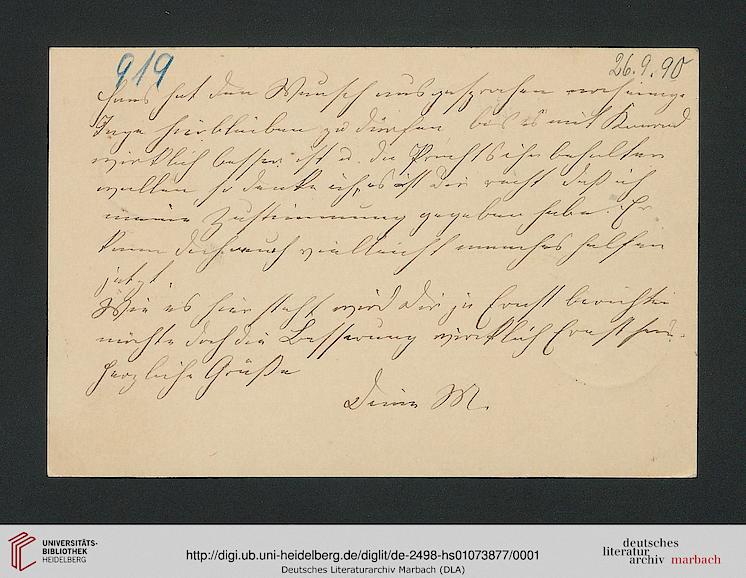 919
26.9.90
Hans hat den Wunsch ausgesprochen noch einige
Tage hierbleiben zu dürfen, bis es mit Konrad
wirklich besser ist u. die ihn behalten
wollen so denke ich, es ist Dir recht daß ich
meine Zustimmung gegeben habe. Er
kann Dich auch vielleicht manches helfen
jetzt.
Wie es hier steht wird Dir ja Ernst berichten
möchte doch die Besserung wirklich Ernst sein.
Herzliche Grüße
Deine M.
UNIVERSITÄTS-
BIBLIOTHEK
HEIDELBERG
http://digi.ub.uni-heidelberg.de/diglit/de-2498-hs01073877/0001
Deutsches Literaturarchiv Marbach (DLA)
deutsches
literatur
archiv marbach